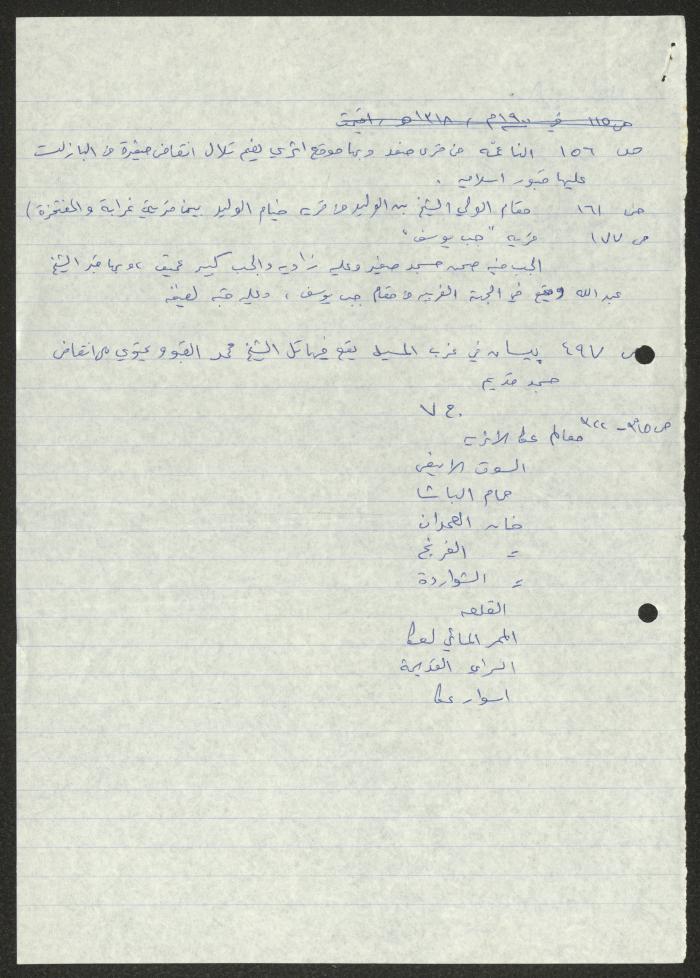 ص ١١٥ في ١٩٠٠م ، ١٣١٨هـ ، اقيمت
ص ١٥٦ الناعمه من قرى صفد وبها موقع اثري يضم تلال انقاض صغيرة من البازلت
عليها قبور اسلاميه .
ص ١٦١ مقام الولي الشيخ بن الوليد من قريه خيام الوليد بين قريتي غرابة والمفتخرة)
ص ١٧٧ قريه "جب يوسف"
الجب فيه صحن مسجد صغير وعليه زاويه والجب كبير عميق ، وبها قبر الشيخ
عبد الله ويقع في الجهة الغربيه من مقام جب يوسف ، وعليه قبه لطيفه
ص ٤٩٧ بيسان في غرب المسيل يقع فيها تل الشيخ محمد القبو ويحتوي على انقاض
مسجد قديم
ج ٧
ص ٣١٥ - ٣٢٢ معالم عكا الاثريه
السوق الابيض
حمام الباشا
خان العمدان
= الفرنج
= الشواردة
القلعه
الممر المائي لعكا
السراي القديمة
اسوار عكا